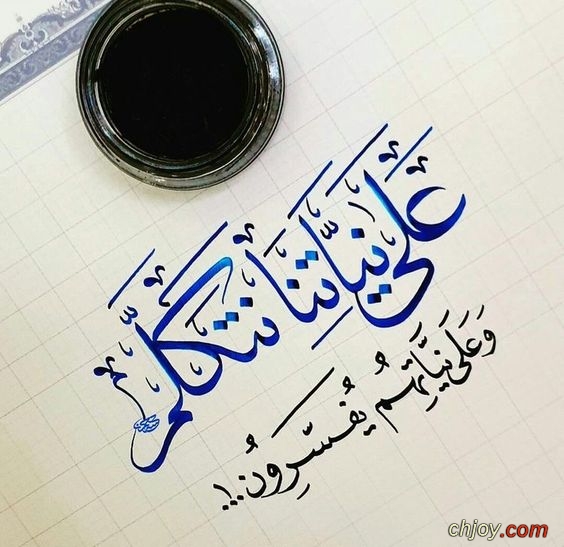 عَلَى نيَّاتِنَا نتكلَّم
وَعَلَى نيَّاتِهُم يُفَسِّرِوُن..!
chjoy.com